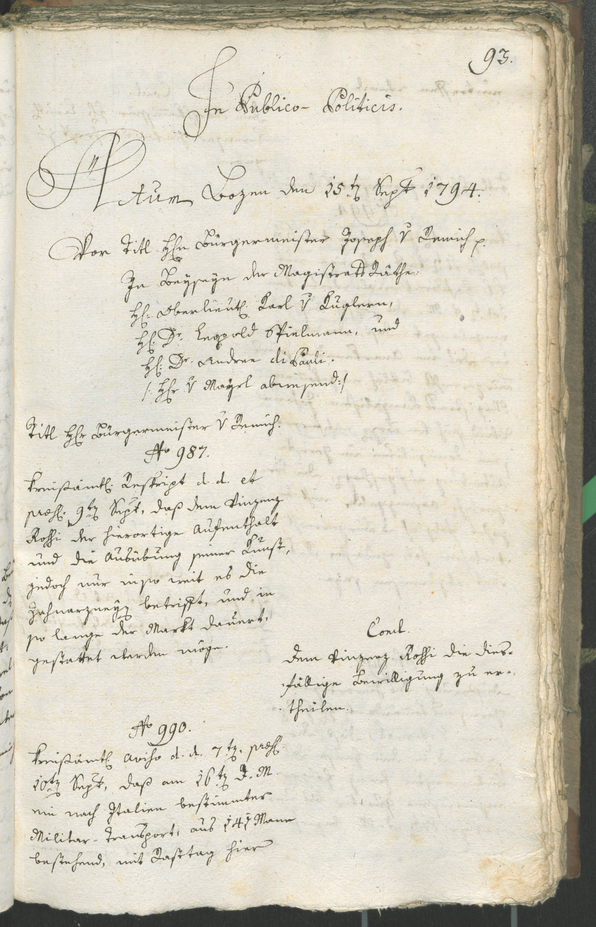 93.
In Publico-Politicis.
Actum Bozen den 15t Sept 1794.
Vor Titl Hn Bürgermeister Joseph v Remich p
In Beyseyn der Magistrats Räthe
H: Oberlieut. Karl v Kuglern,
H: Dr. Leopold Spielmann, und
H: Dr. Andree di Pauli.
/: Hr v Mayrl abwesend :/
Titl Hr Bürgermeister v Remich.
No 987.
Kreisämtl: Reskript d. d. et
praes: 9t Sept, daß dem Vinzenz
Rossi der hierortige Aufenthalt
und die Ausübung seiner Kunst,
jedoch nur in so weit es die
Zahnarzney betrifft, und in
so lange der Markt dauert,
gestattet werden möge.
Concl.
Dem Vinzenz Rossi die dies-
fällige Bewilligung zu er-
theilen.
No 990.
Kreisämtl Aviso d. d. 7t praes
10t Sept, daß am 16t d. M.
ein nach Italien bestimmter
Militar-Transport, aus 141 Mann
bestehend, mit Rasttag hier